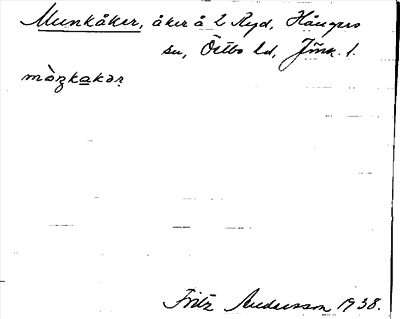 Munkåker, åker å 2 Ryd, Hångers
su, Östbo hd, Jönk. l.
mòŋkakər
Fritz Andersson 1938.